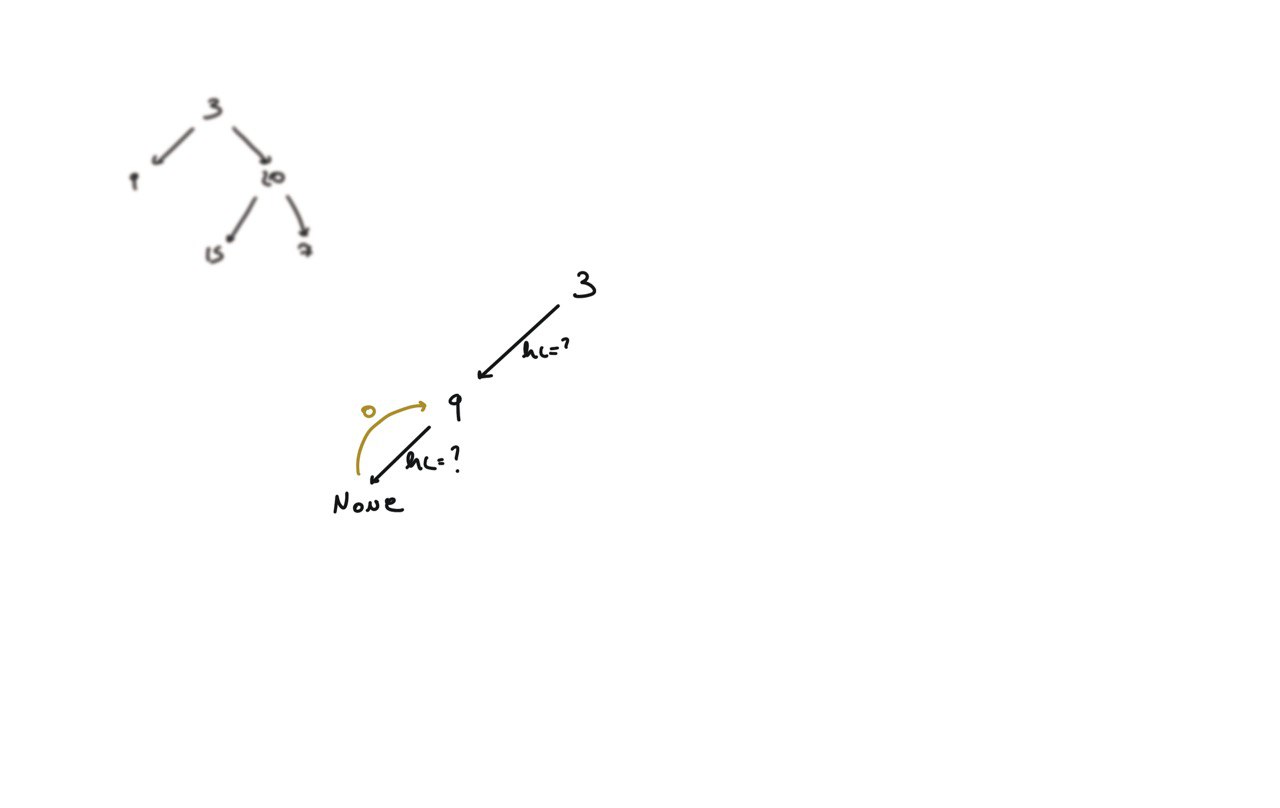 3
9
20
15
7
3
hL=?
0
9
hL=?
None